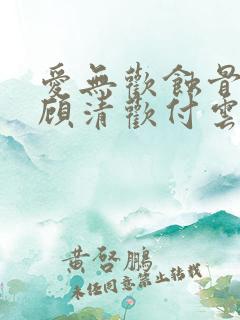 愛無歡蝕骨
顧清歡付雲
黃啓鵬
未经同意禁止转载